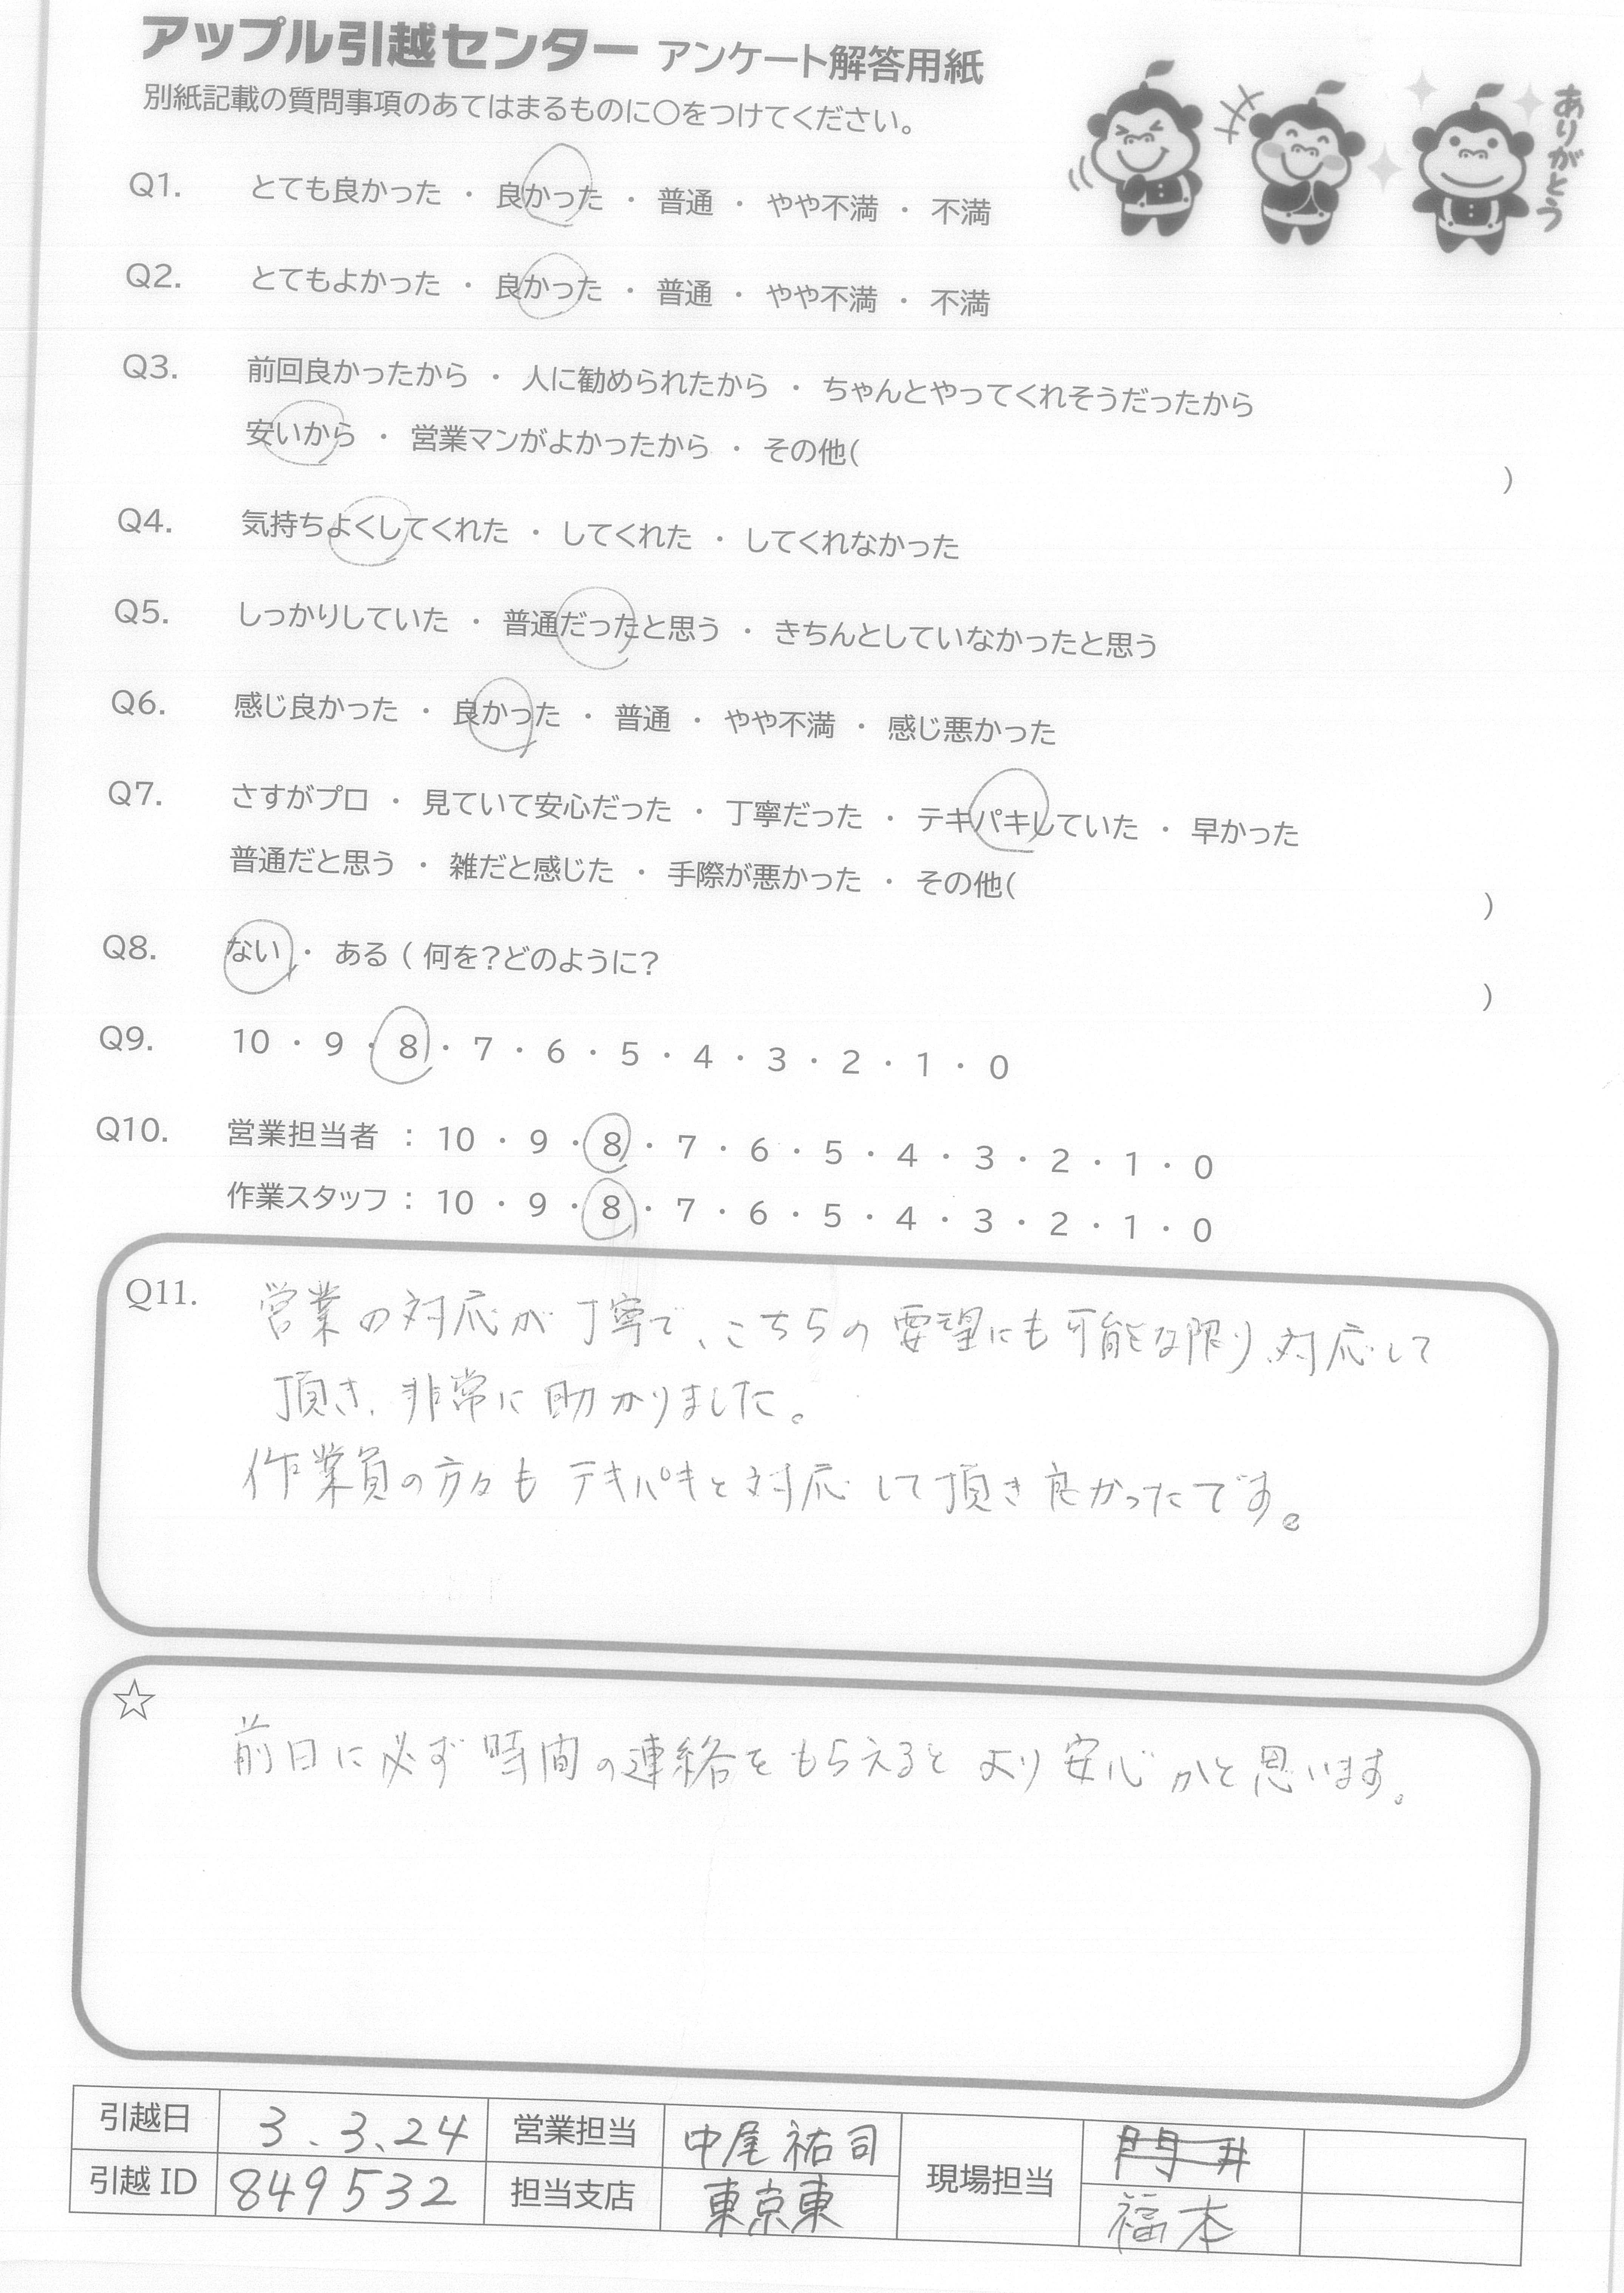 アップル引越センター アンケート解答用紙
別紙記載の質問事項のあてはまるものに○をつけてください。
ありがとう
Q1. とても良かった ・ 良かった ・ 普通 ・ やや不満 ・ 不満
Q2. とてもよかった ・ 良かった ・ 普通 ・ やや不満 ・ 不満
Q3. 前回良かったから ・ 人に勧められたから ・ ちゃんとやってくれそうだったから
安いから ・ 営業マンがよかったから ・ その他( )
Q4. 気持ちよくしてくれた ・ してくれた ・ してくれなかった
Q5. しっかりしていた ・ 普通だったと思う ・ きちんとしていなかったと思う
Q6. 感じ良かった ・ 良かった ・ 普通 ・ やや不満 ・ 感じ悪かった
Q7. さすがプロ ・ 見ていて安心だった ・ 丁寧だった ・ テキパキしていた ・ 早かった
普通だと思う ・ 雑だと感じた ・ 手際が悪かった ・ その他( )
Q8. ない ・ ある ( 何を?どのように? )
Q9. 10 ・ 9 ・ 8 ・ 7 ・ 6 ・ 5 ・ 4 ・ 3 ・ 2 ・ 1 ・ 0
Q10. 営業担当者 : 10 ・ 9 ・ 8 ・ 7 ・ 6 ・ 5 ・ 4 ・ 3 ・ 2 ・ 1 ・ 0
作業スタッフ : 10 ・ 9 ・ 8 ・ 7 ・ 6 ・ 5 ・ 4 ・ 3 ・ 2 ・ 1 ・ 0
Q11. 営業の対応が丁寧で、こちらの要望にも可能な限り、対応して
頂き、非常に助かりました。
作業員の方々も テキパキと対応して頂き良かったです。
☆
前日に必ず時間の連絡をもらえるとより安心かと思います。
引越日 3.3.24 営業担当 中尾祐司 現場担当 門井
引越 ID 849532 担当支店 東京東 福本